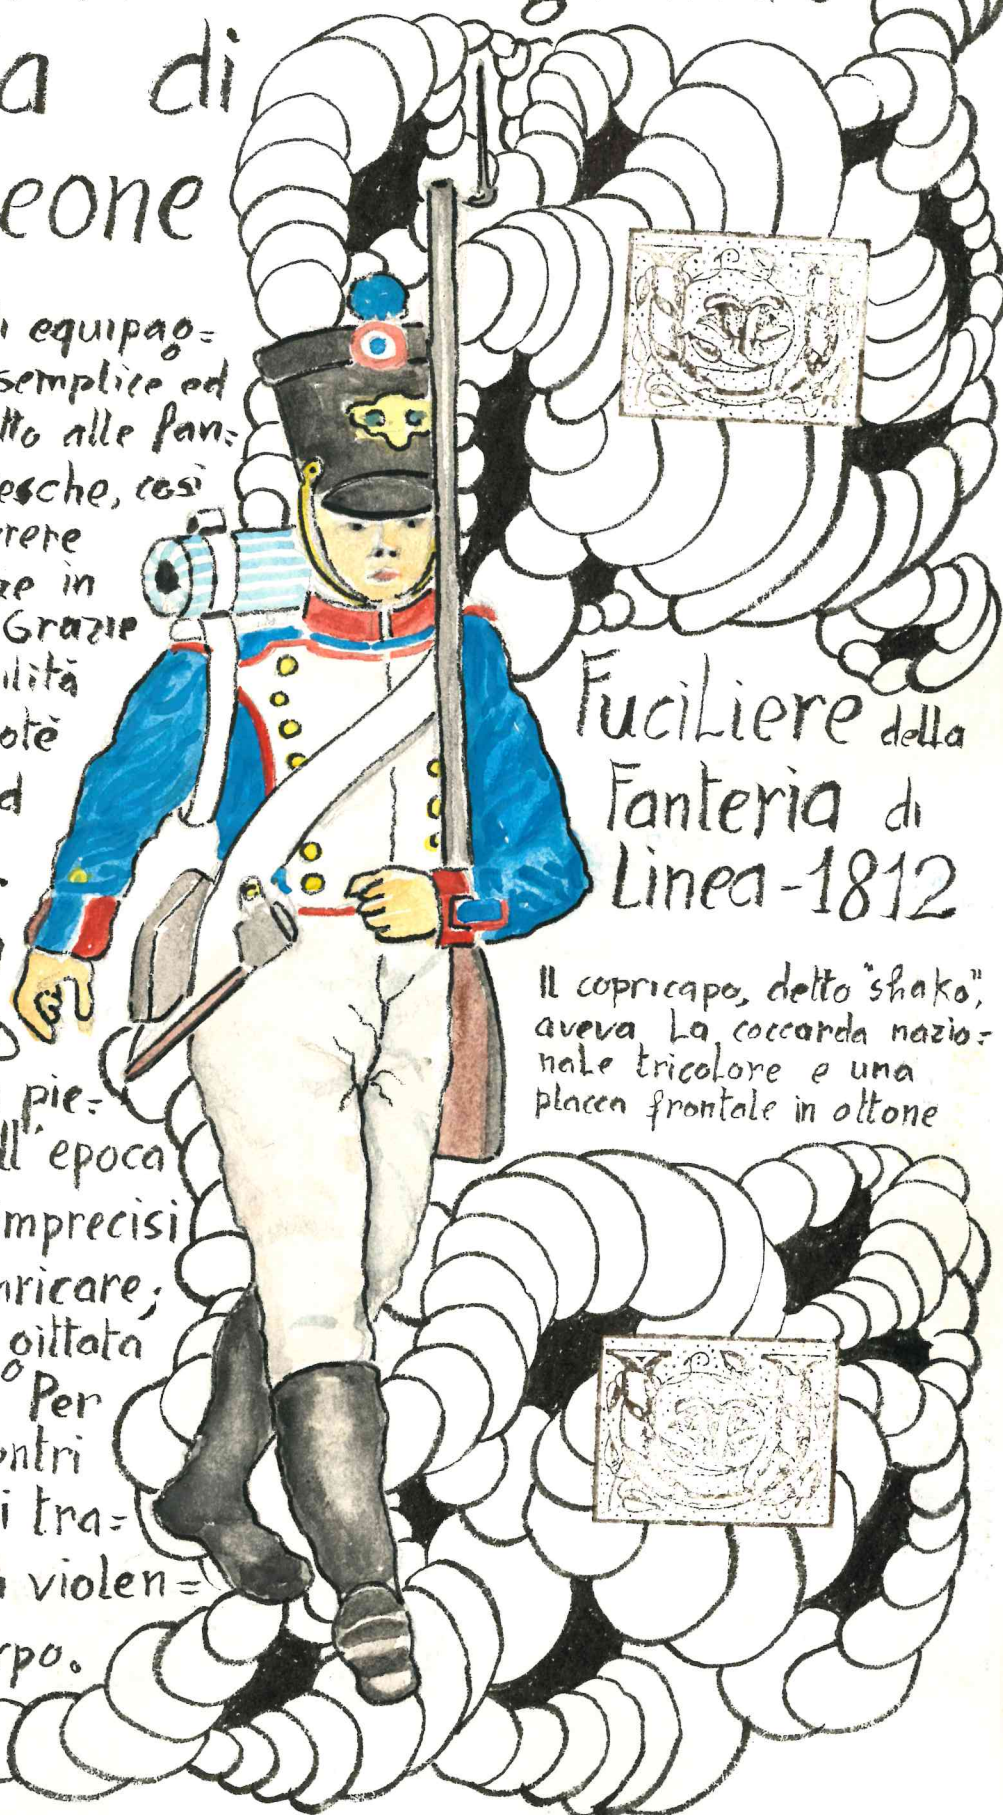 a di
eone
equipag=
semplice ed
tto alle fan=
esche, così
rere
ze in
Grazie
ilità
otè
d
pie=
ll'epoca
imprecisi
aricare;
gittata
Per
ontri
i tra=
violen=
rpo.
Fuciliere della
Fanteria di
Linea-1812
Il copricapo, detto "shako",
aveva la coccarda nazio=
nale tricolore e una
placca frontale in ottone